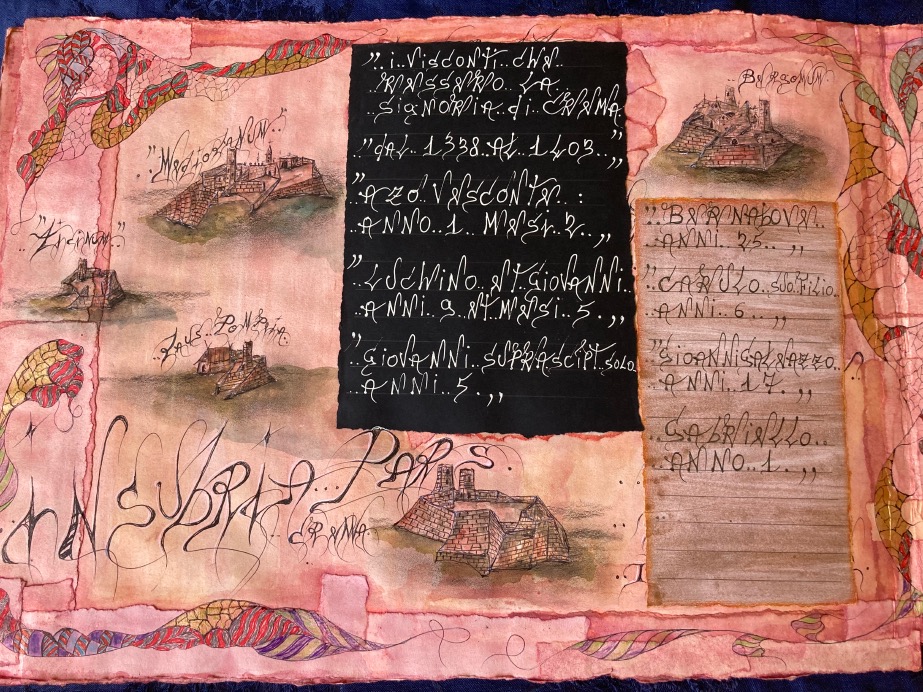 "Mediolanum"
"Ticinum"
Laus Pompeia
Insubria Pars
Crema
"I Visconti che
ressero la
signoria di Crema
"dal 1338 al 1403"
"Azo Vesconte :
anno 1 mesi 2"
"Luchino et Giovanni
anni 9 et mesi 5"
"Giovanni suprascipt solo
anni 5"
Bergomum
"Bernabove
anni 25"
"Carulo suo filio
anni 6"
"Gioannigaleazzo
anni 17"
"Gabriello
anno 1"